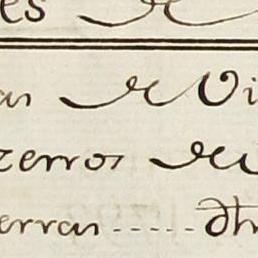 es de
as de Vi
zerros de
erras ..... dh